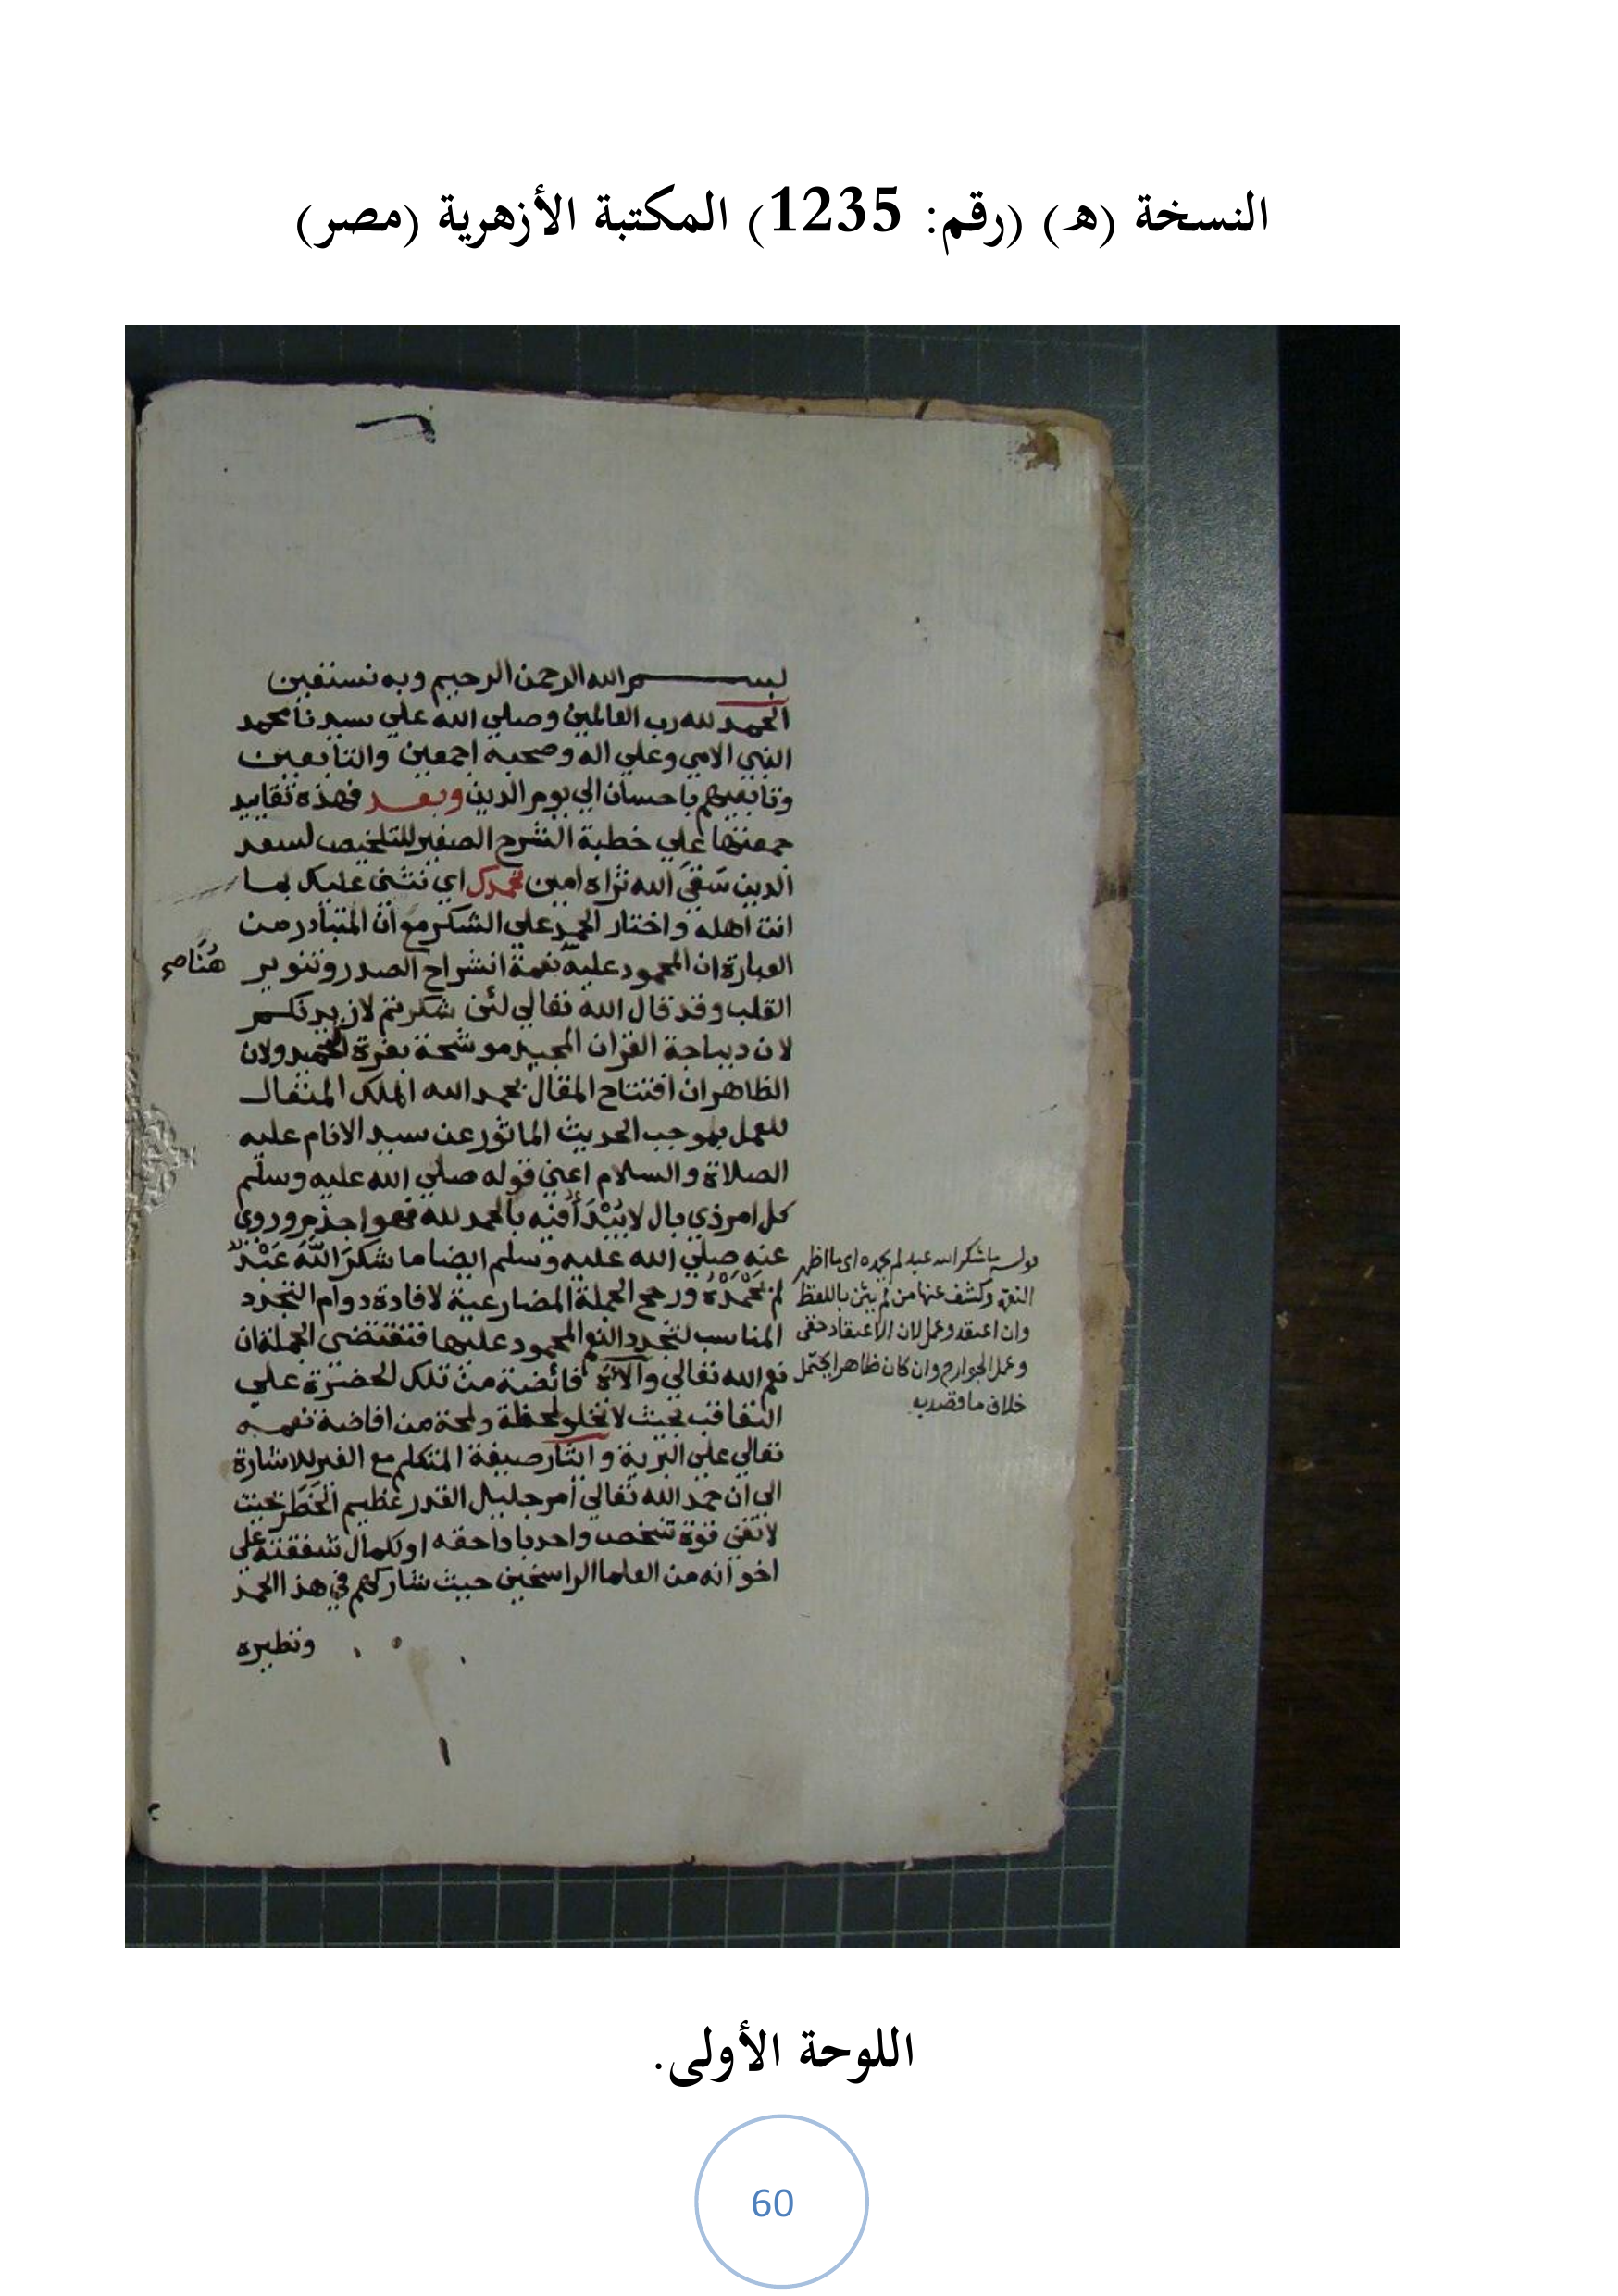 النسخة (هـ) (رقم: 1235) المكتبة الأزهرية (مصر)
بسم الله الرحمن الرحيم وبه نستعين
الحمد لله رب العالمين وصلي الله علي سيدنا محمد
النبي الامي وعلي اله وصحبه اجمعين والتابعين
وتابعيهم باحسان الي يوم الدين وبعد فهذه تقاييد
جمعتها علي خطبة الشرح الصغير للتلخيص لسعد
الدين سَقَي الله ثراه امين نحمدك اي نثني عليك بما
انت اهله واختار الحمد علي الشكر مع ان المتبادر من
العبارة ان المحمود عليه نعمة انشراح الصدر وتنوير
هُنَا صح
القلب وقد قال الله تعالي لئن شكرتم لازيدنكم
لان ديباجة القران المجيد موشحة بغرة التحميد ولان
الظاهر ان افتتاح المقال بحمد الله الملك المتعال
للعمل بموجب الحديث الماثور عن سيد الانام عليه
الصلاة والسلام اعني قوله صلي الله عليه وسلم
كل امر ذي بال لا يُبْدَأُ فيه بالحمد لله فهو اجذم وروي
عنه صلي الله عليه وسلم ايضا ما شكرَ اللّهَ عَبْدٌ
لم يَحْمَدْهُ ورجح الجملة المضارعية لافادة دوام التجدد
المناسب لتجدد النعم المحمود عليها فتقتضي الجملة ان
نعم الله تعالي وآلاءَه فائضة من تلك الحضرة علي
التعاقب بحيث لا تخلو لحظة ولمحة من افاضة نعمه
تعالي علي البرية وايثار صيغة المتكلم مع الغير للاشارة
الي ان حمد الله تعالي أمر جليل القدر عظيم الخَطَر بحيث
لا تفي قوة شخص واحد باداء حقه او لكمال شفقته علي
اخوانه من العلما الراسخين حيث شاركهم في هذا الحمد
ونظيره
قوله ما شكر الله عبد لم يحمده اي ما اظهر
النعمة وكشف عنها من لم يثن باللفظ
وان اعتقد وعمل لان الاعتقاد خفي
وعمل الجوارح وان كان ظاهرا يحتمل
خلاف ما قصد به
اللوحة الأولى.
60